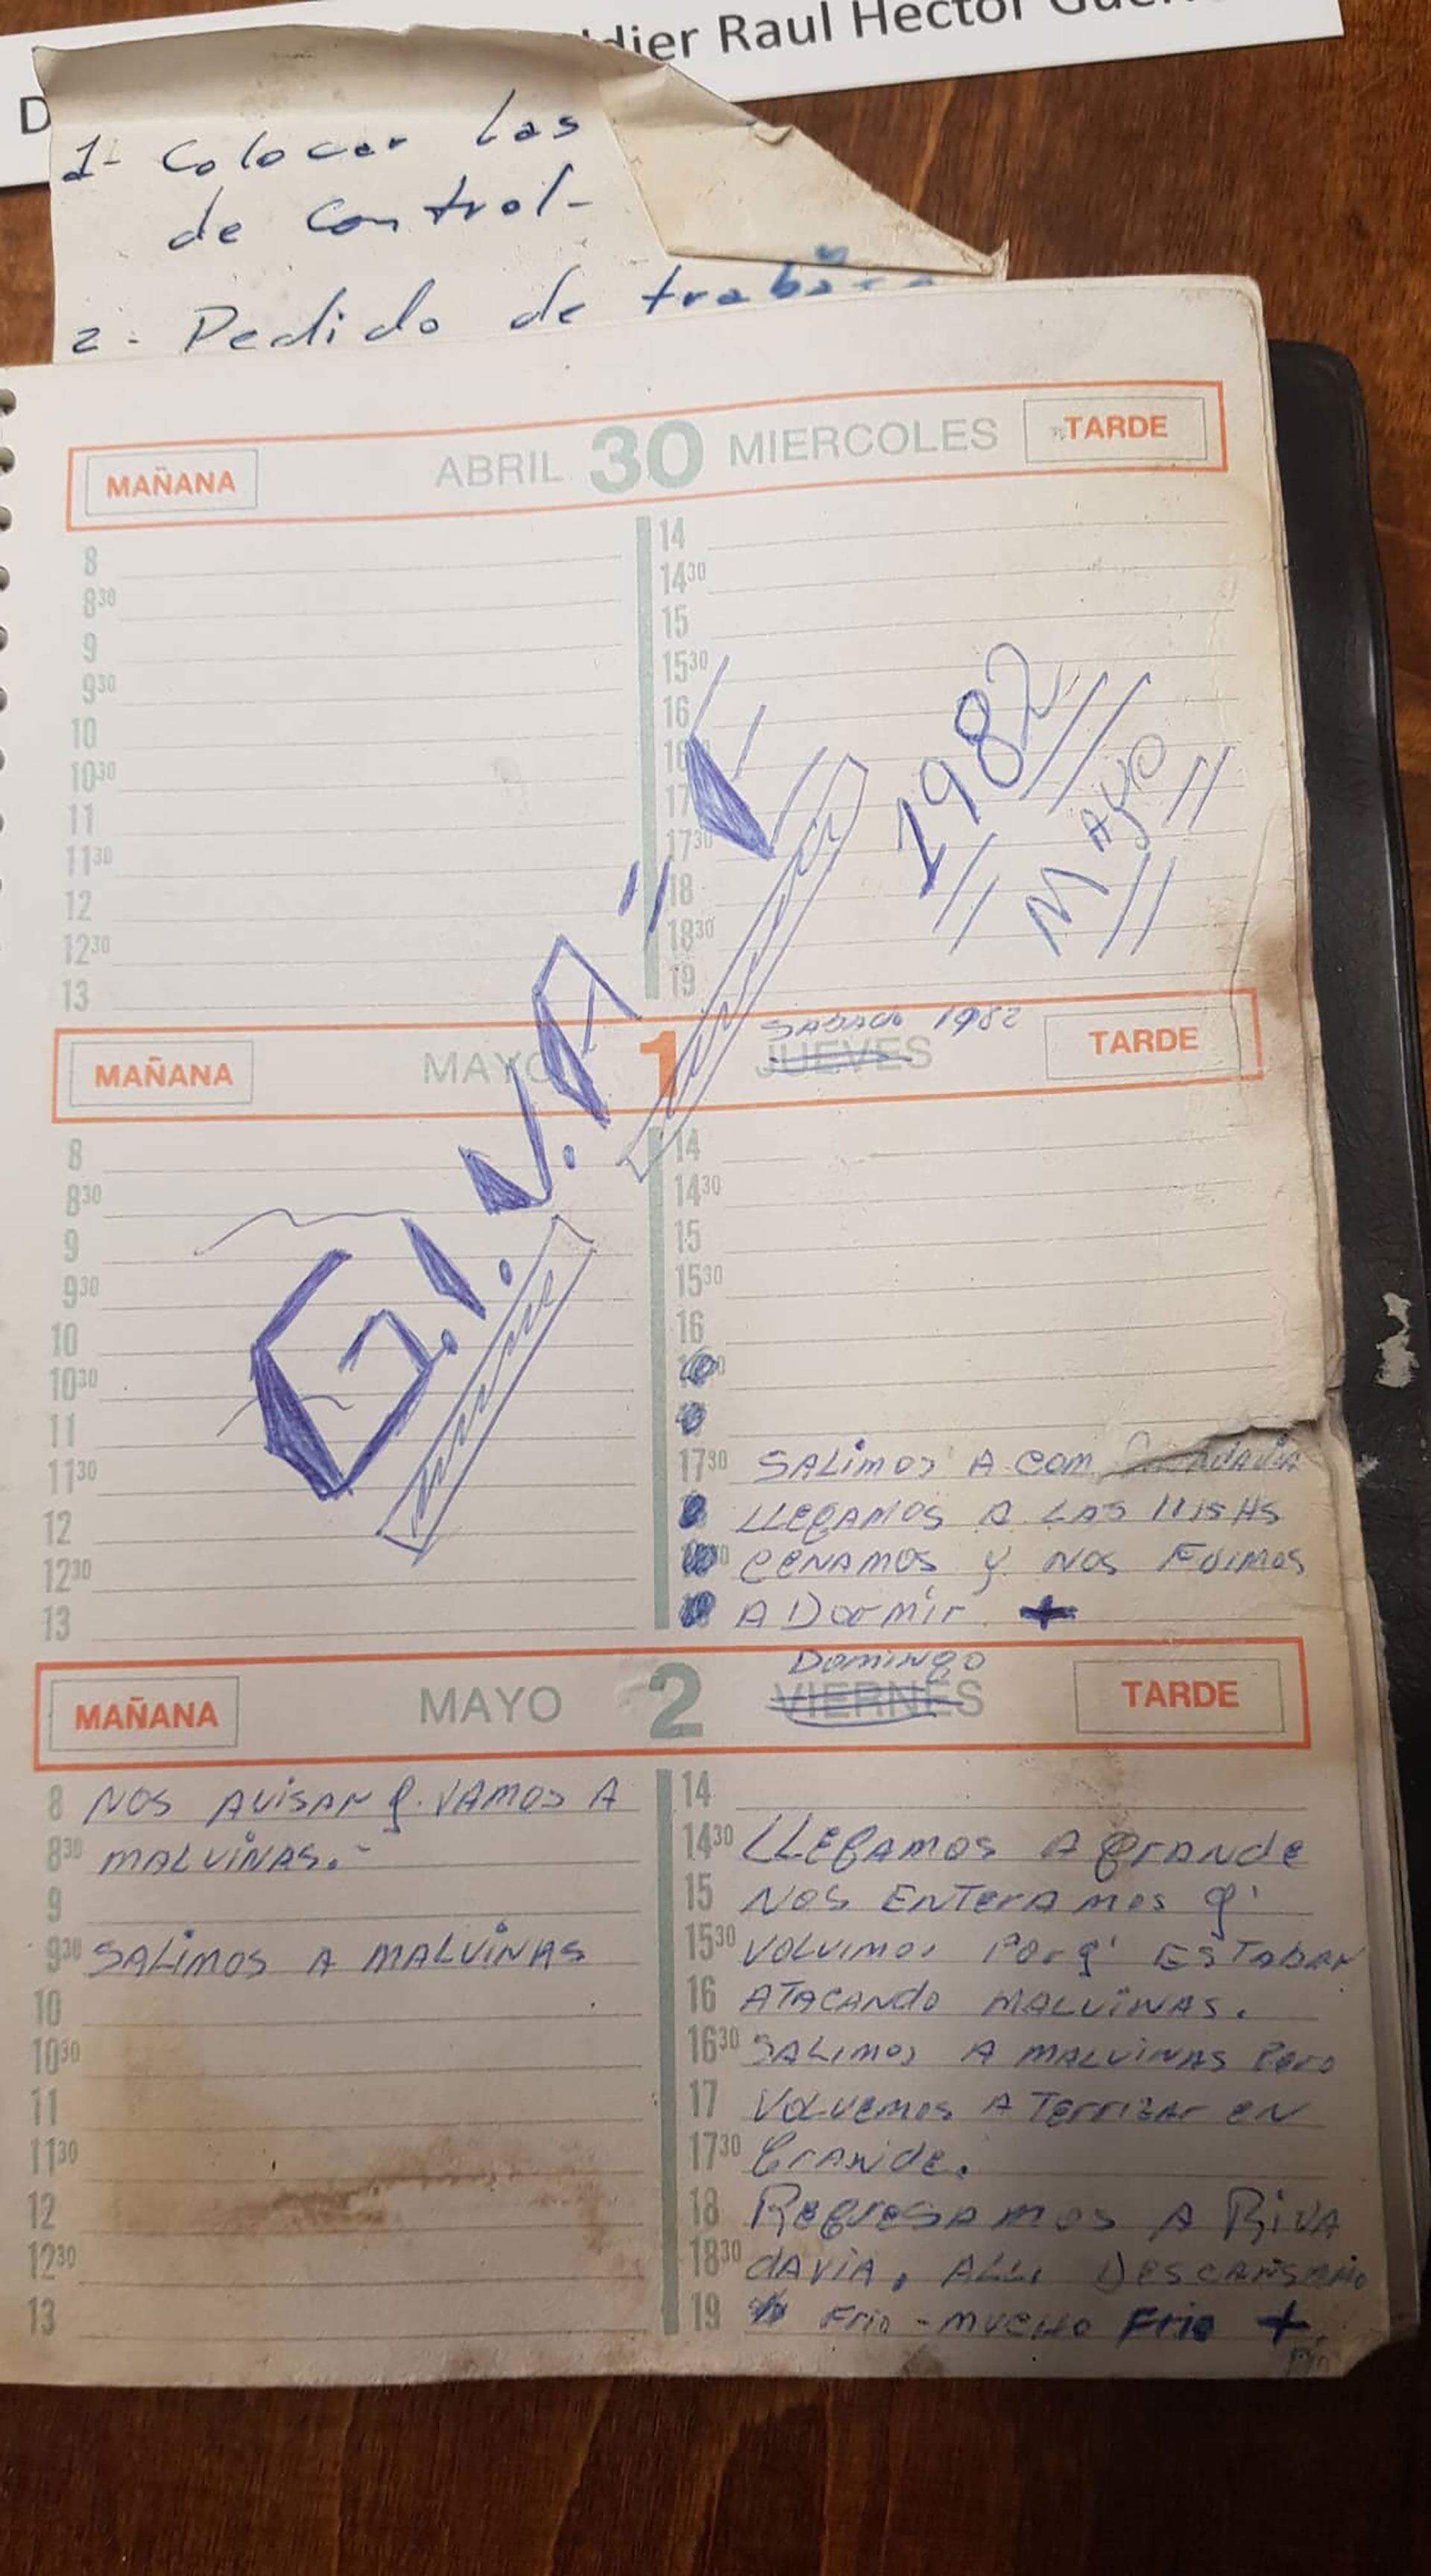 ldier Raul Hector
D
1- Colocar las
de control-
2- Pedido de trabajo
MAÑANA ABRIL 30 MIERCOLES TARDE
8
830
9
930
10
1030
11
1130
12
1230
13
14
1430
15
1530
16
16
17
1730
18
1830
19
1982
Mayo
G.I.V.A "
MAÑANA MAYO 1 JUEVES SABADO 1982 TARDE
8
830
9
930
10
1030
11
1130
12
1230
13
14
1430
15
1530
16
1730 SALIMOS A COM
LLEGAMOS A LAS 1115 HS
CENAMOS y NOS FUIMOS
A DORMIR +
MAÑANA MAYO 2 VIERNES Domingo TARDE
8 NOS AVISAN q. VAMOS A
830 MALVINAS.-
9
930 SALIMOS A MALVINAS
10
1030
11
1130
12
1230
13
14
1430 LLEGAMOS A GRANDE
15 NOS ENTERAMOS q'
1530 VOLVIMOS PORq' ESTABAN
16 ATACANDO MALVINAS.
1630 SALIMOS A MALVINAS PERO
17 VOLVEMOS A TERRIZAR EN
1730 GRANDE.
18 REGRESAMOS A RIVA
1830 DAVIA, ALLI DESCANSAMO
19 FRIO - MUCHO FRIO +